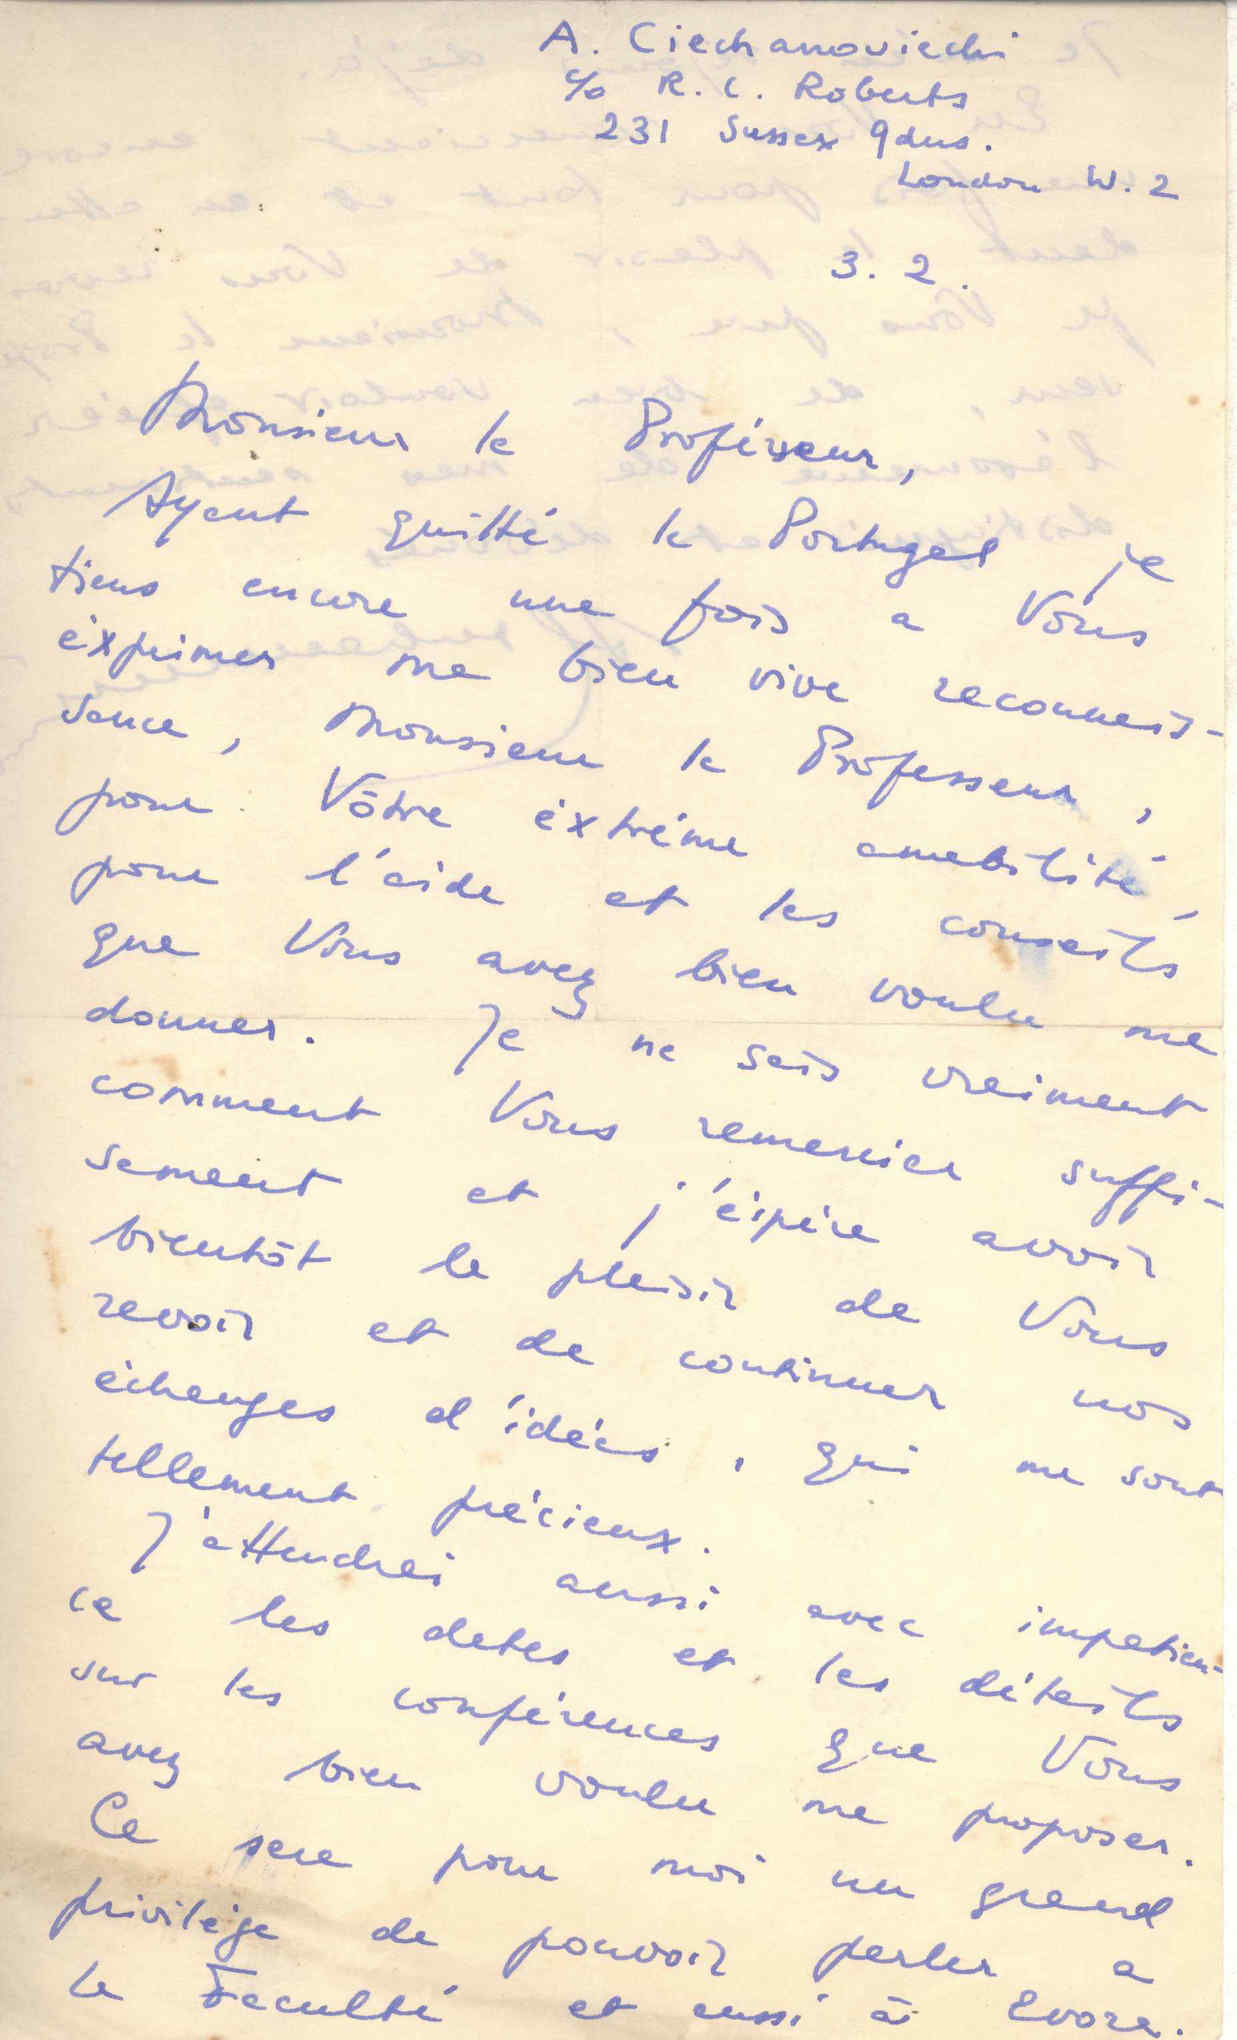 A. Ciechanowiecki
c/o R. C. Roberts
231 Sussex gdns.
London W. 2
3. 2.
Monsieur le Profésseur,
Ayant quitté le Portugal je
tiens encore une fois a Vous
éxprimer ma bien vive reconnais-
sance, Monsieur le Professeur,
pour Vôtre éxtrême amabilité,
pour l'aide et les conseils
que Vous avez bien voulu me
donner. Je ne sais vraiment
comment Vous remercier suffi-
sament et j'éspère avoir
bientôt le plaisir de Vous
revoir et de continuer nos
échanges d'idées, qui me sont
tellement précieux.
J'attendrai aussi avec impatien-
ce les dates et les détails
sur les conférences que Vous
avez bien voulu me proposer.
Ce sera pour moi un grand
privilège de pouvoir parler a
la Faculté et aussi à Evora.